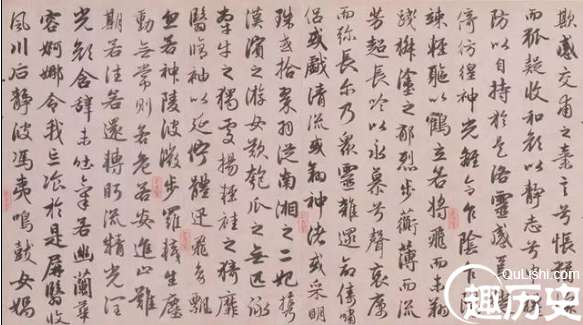 感交甫之棄言兮悵
而狐疑收和顏以靜志兮
防以自持於是洛靈感焉
倚彷徨神光離合乍陰乍
竦輕軀以鶴立若將飛而未翔
踐椒塗之郁烈步蘅薄而流
芳超長吟以永慕兮聲哀厲
而彌長爾乃眾靈雜遝命儔嘯
侶或戲清流或翔神渚或采明
珠或拾翠羽從南湘之二妃攜
漢濱之游女歎匏瓜之無匹詠
牽牛之獨處揚輕袿之猗靡
翳脩袖以延佇體迅飛鳧飄
忽若神陵波微步羅襪生塵
動無常則若危若安進止難
期若往若還轉眄流精光潤
玉顏含辭未吐氣若幽蘭華
容婀娜令我忘飡於是屏翳收
風川后靜波馮夷鳴鼓女媧
QuLishi.com
趣历史